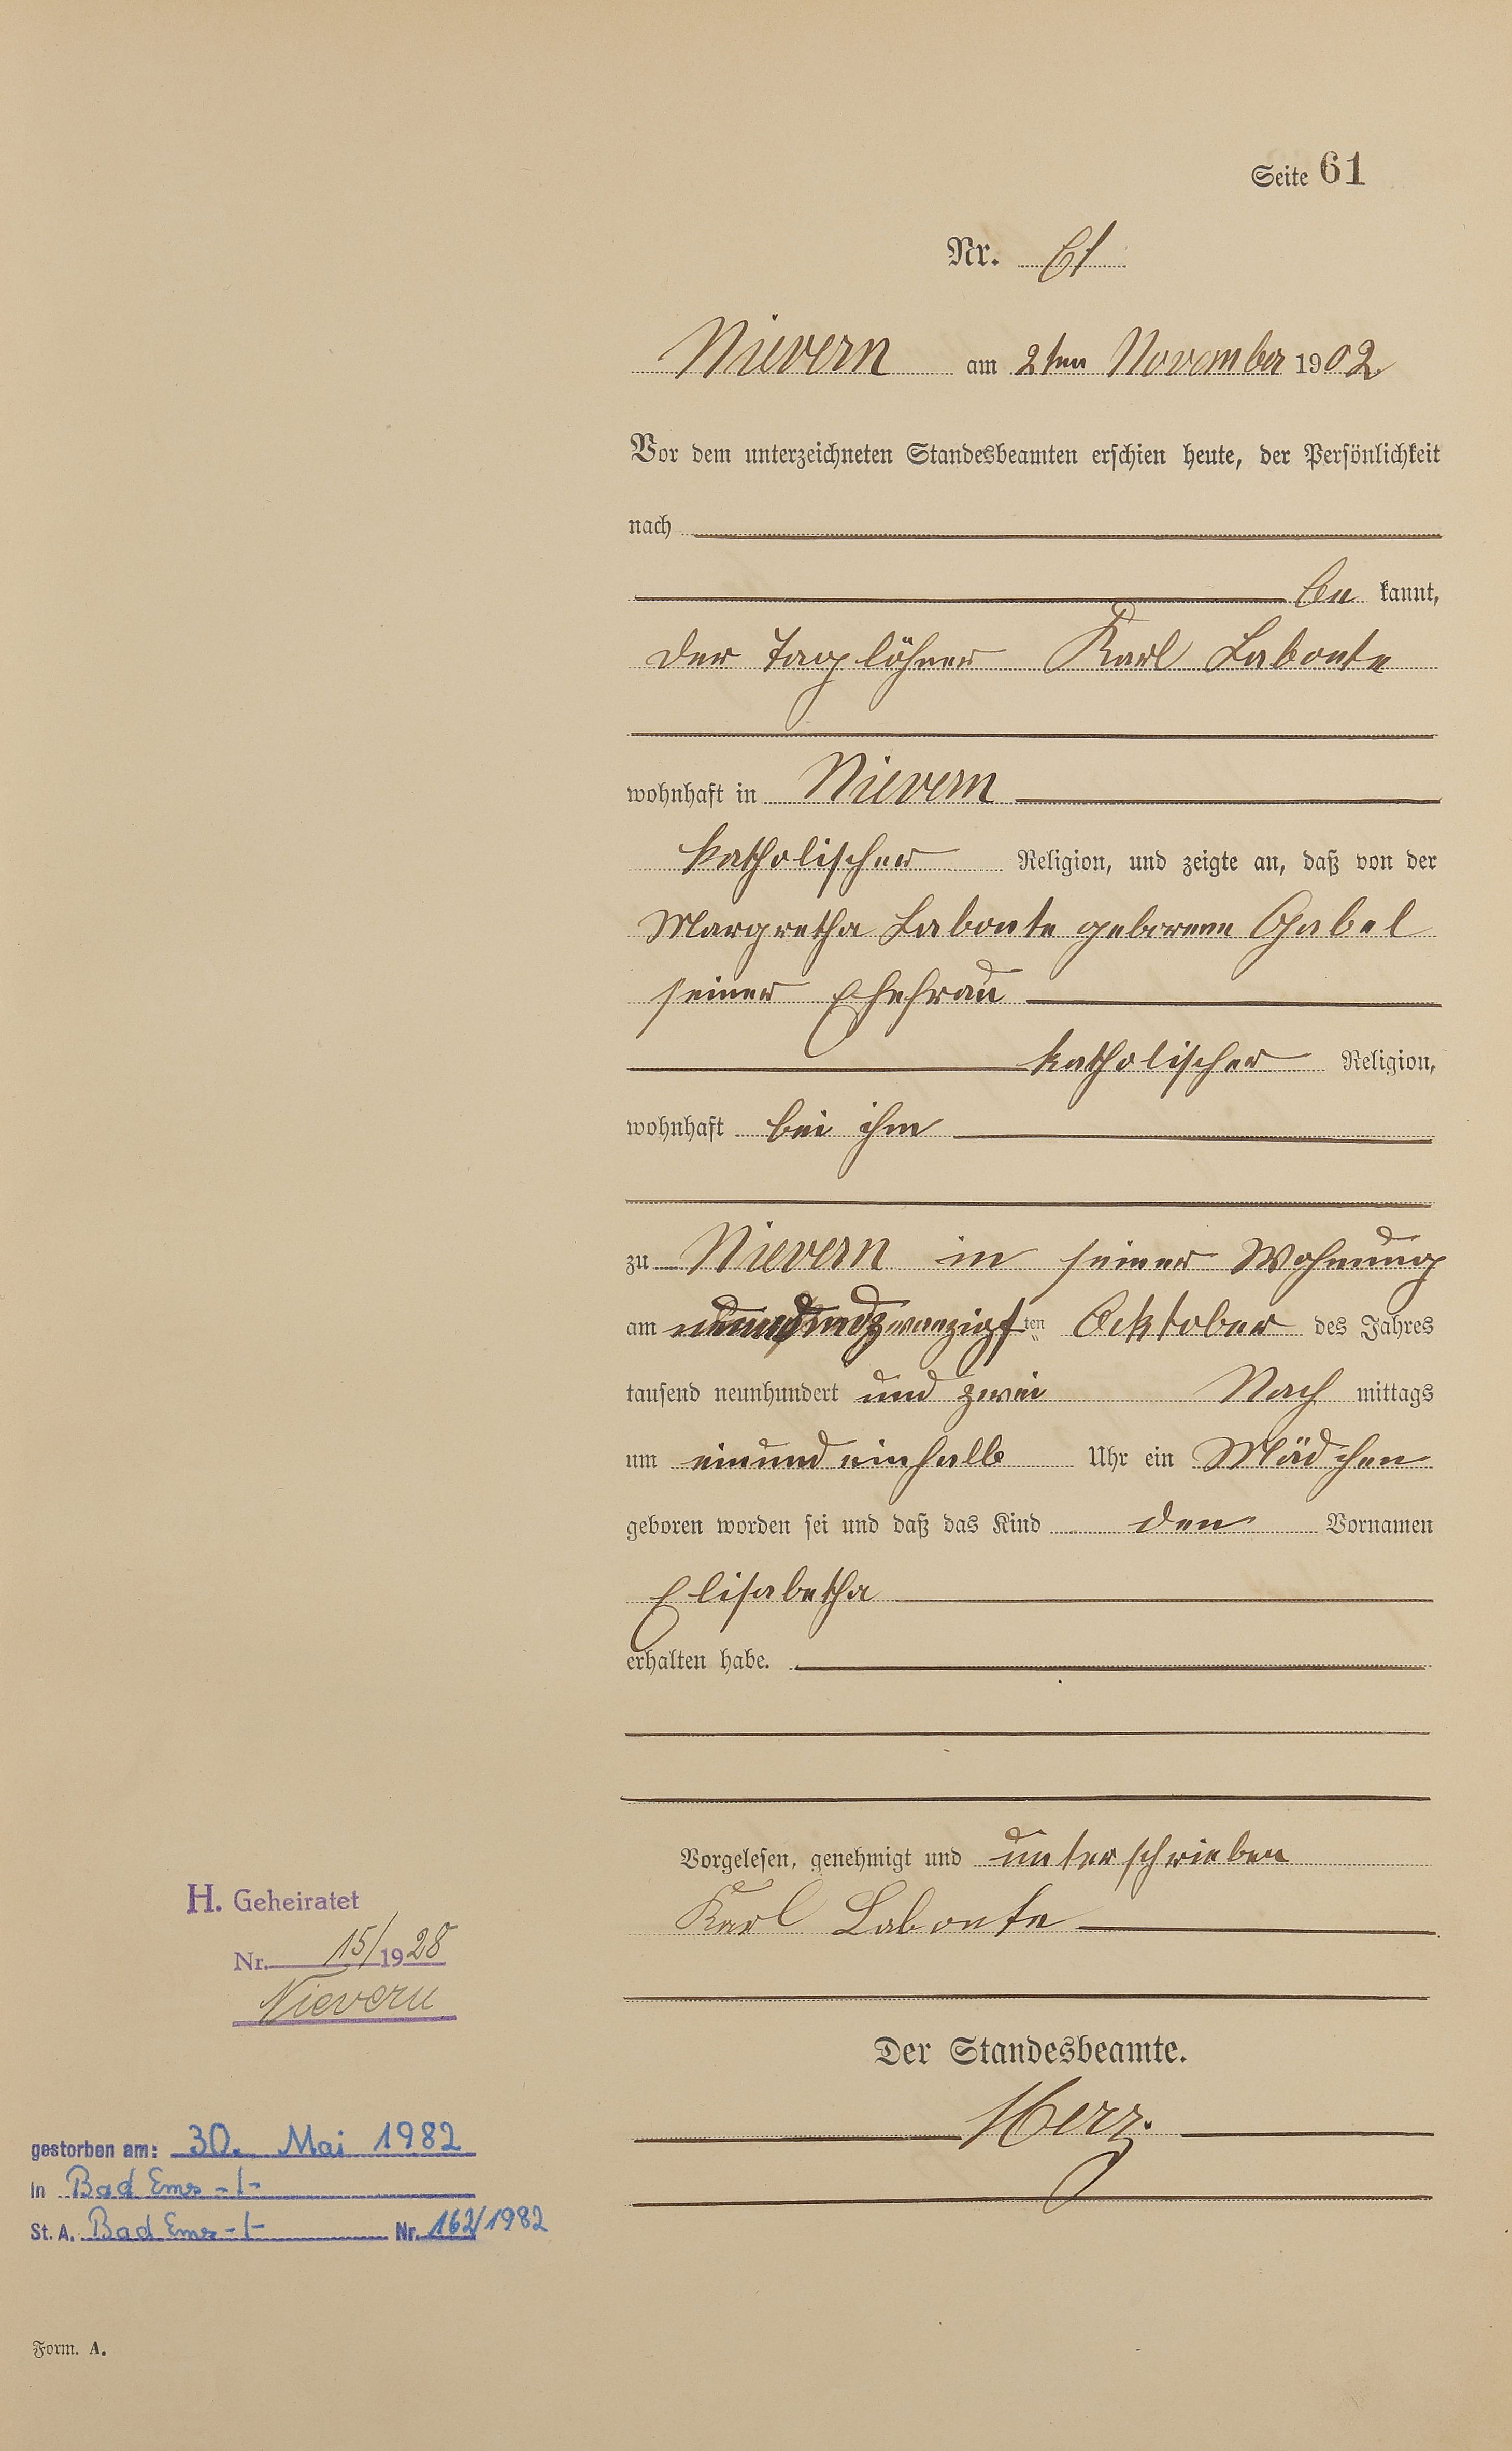 Seite 61
Nr. 61
Nievern am 2ten November 1902
Vor dem unterzeichneten Standesbeamten erschien heute, der Persönlichkeit
nach
be kannt,
der Taglöhner Karl Labonte
wohnhaft in Nievern
katholischer Religion, und zeigte an, daß von der
Margretha Labonte geborene Gabel
seiner Ehefrau
katholischer Religion,
wohnhaft bei ihm
zu Nievern in seiner Wohnung
am neunundzwanzigsten Ocktober des Jahres
tausend neunhundert und zwei Nach mittags
um einundeinhalb Uhr ein Mädchen
geboren worden sei und daß das Kind den Vornamen
Elisabetha
erhalten habe.
Vorgelesen, genehmigt und unterschrieben
Karl Labonte
Der Standesbeamte.
Herz.
H. Geheiratet
Nr. 15/1928
Nievern
gestorben am: 30. Mai 1982
in Bad Ems -1-
St. A. Bad Ems -1- Nr. 162/1982
Form. A.